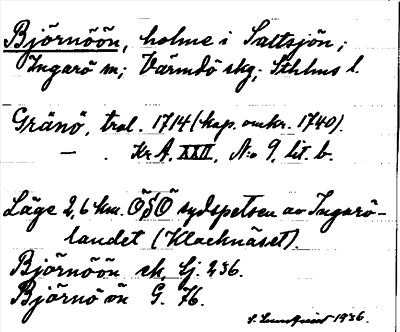 Björnöön, holme i Saltsjön;
Ingarö m; Värmdö skg; Sthlms l.
Gränö, trol. 1714 (kop. omkr. 1740).
— . Kr A. XXII, N:o 9, lit. b.
Läge 2,6 km. ÖSÖ sydspetsen av Ingarö-
landet (Klacknäset).
Björnöön ek, Sj. 236.
Björnö ön G. 76.
1936.